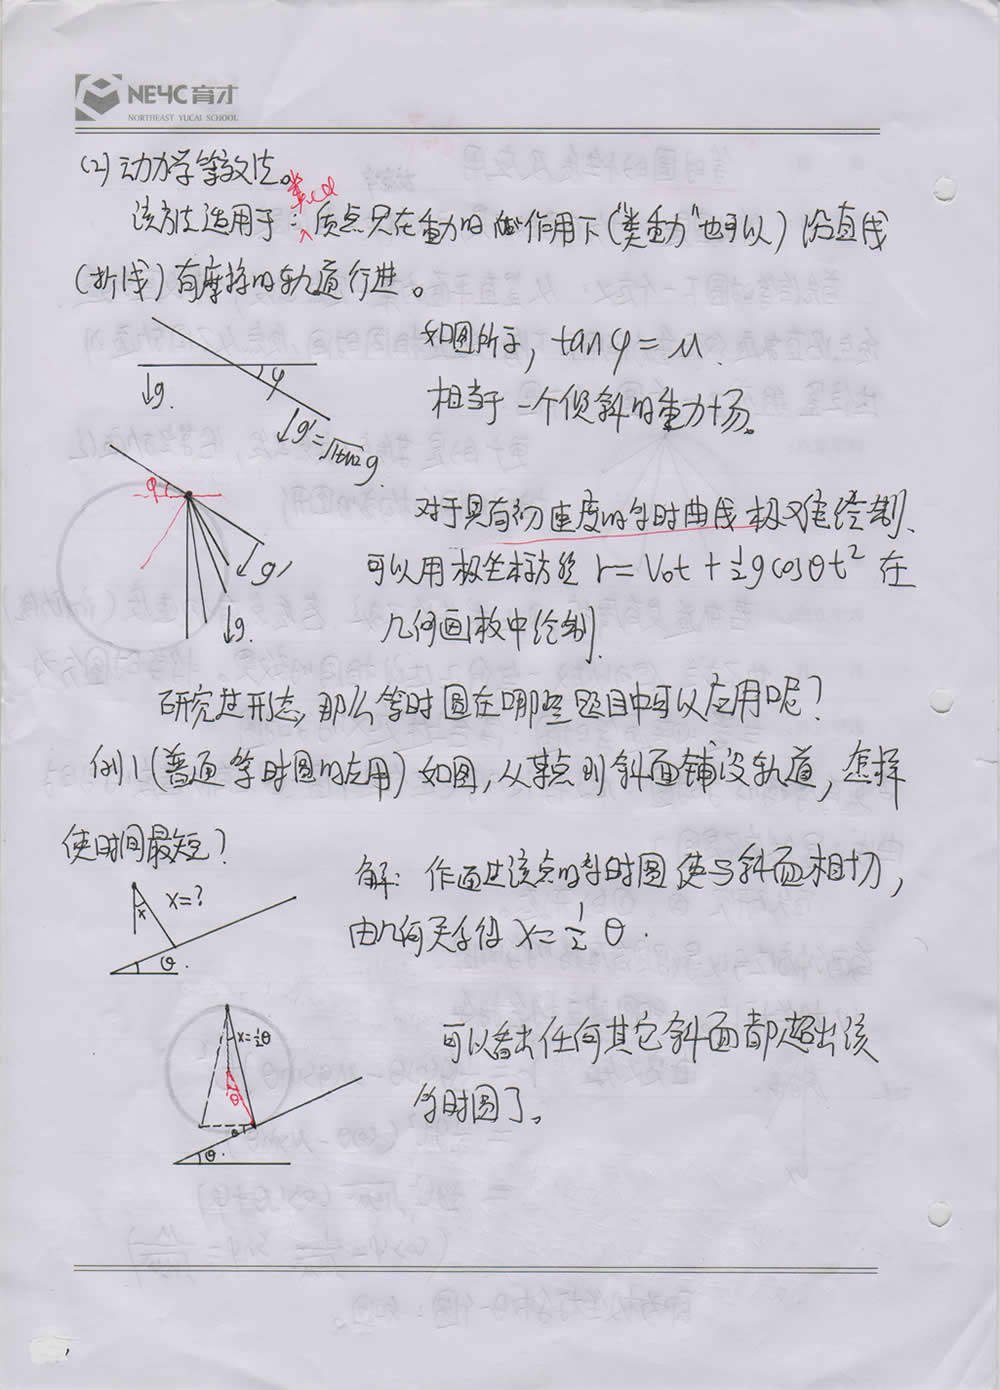 NEYC 育才
NORTHEAST YUCAI SCHOOL
(2) 动力学等效法。
该方法适用于: 质点只在重力的 作用下("类重力"也可以) 沿直线
(折线) 有摩擦的轨道行进。
如图所示, tanφ = μ.
相当于一个倾斜的重力场。
↓g. φ
↓g'=√1+μ² g
φ
对于具有初速度的等时曲线极难绘制.
g' 可以用极坐标方程 r = V₀t + ½gcosθt² 在
↓g. 几何画板中绘制.
研究过形态, 那么等时圆在哪些题目中可以应用呢?
例1 (普通等时圆的应用) 如图, 从某点到斜面铺设轨道, 怎样
使时间最短?
解: 作通过该点的等时圆使与斜面相切,
x x=?
由几何关系得 x=½θ.
θ.
x=½θ
可以看出任何其它斜面都超出该
θ
等时圆了。
θ
θ.